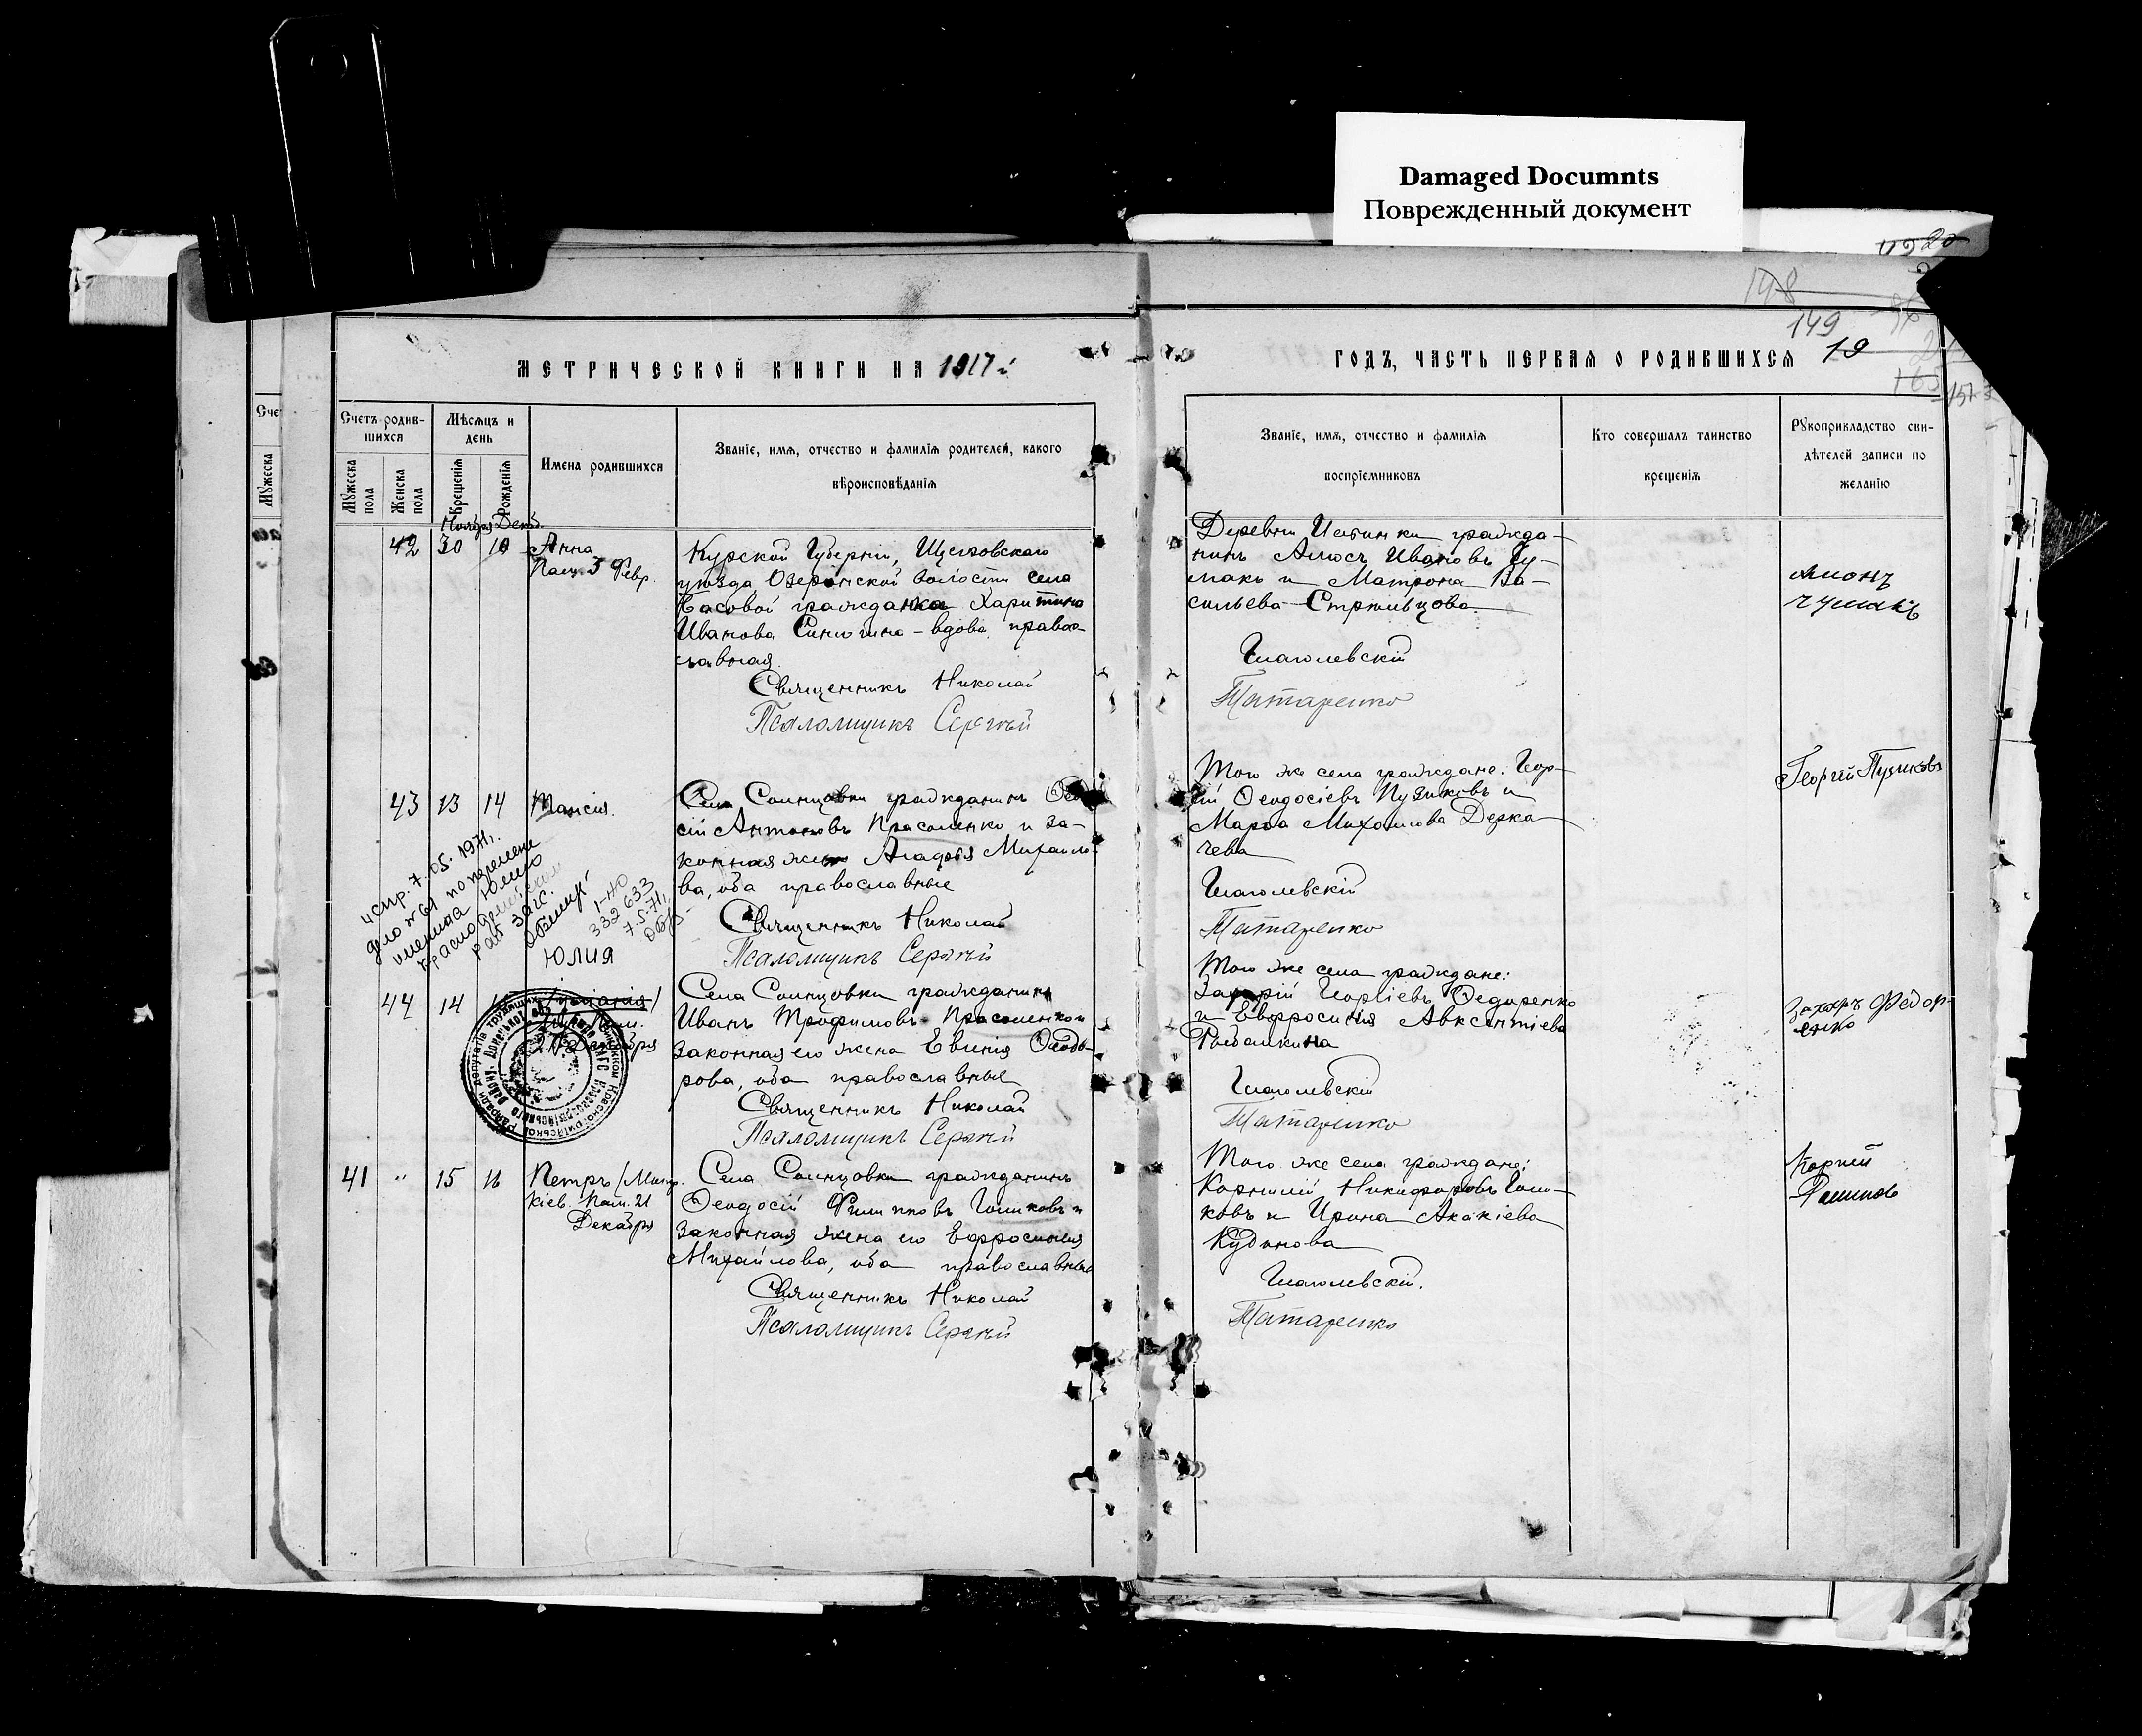 Damaged Documnts
Поврежденный документ
148
149
19
МЕТРИЧЕСКОЙ КНИГИ НА 1917 г
ГОДЪ, ЧАСТЬ ПЕРВАЯ О РОДИВШИХСЯ
Счетъ родив-
шихся
Мужеска
пола
Женска
пола
Мѣсяцъ и
день
Крещенія
Рожденія
Имена родившихся
Званіе, имя, отчество и фамилія родителей, какого
вѣроисповѣданія
Званіе, имя, отчество и фамилія
воспріемниковъ
Кто совершалъ таинство
крещенія
Рукоприкладство сви-
дѣтелей записи по
желанію
Ноября Декаб.
42 30 10 Анна
Пам. 3 Февр.
Курской Губерніи, Щигровскаго
уѣзда Озеранской волости села
Басовой гражданка Харитина
Иванова Синюгина - вдова, право-
славная.
Священникъ Николай
Псаломщикъ Сергѣй
Деревни гражда-
нинъ Амосъ Ивановъ Чу-
макъ и Матрона Ва-
сильева Стрѣльцова.
Глаголевскій
Татаренко
Чумакъ
43 13 14 Таисія.
Села Солнцовки гражданинъ Ѳеодо-
сій Антоновъ Прасоленко и за-
конная жена Агафья Михайло-
ва, оба православные
Священникъ Николай
Псаломщикъ Сергѣй
Того же села граждане: Геор-
гій Ѳеодосіевъ Пузиковъ и
Марѳа Михайлова Дерка-
чева
Глаголевскій
Татаренко
Георгій Пузиковъ
испр. 7.05.1971г.
дело № 61 по перемене
имени на Юлию
Красноармейским
рай ЗАГС.
I-НО
332633
7.5.71г.
Юлия
44 14
Пам.
21 Декабря
Села Солнцовки гражданинъ
Иванъ Трофимовъ Прасоленко и
законная его жена Евгенія Ѳеодо-
рова, оба православные
Священникъ Николай
Псаломщикъ Сергѣй
Того же села граждане:
Захарій Георгіевъ Ѳедоренко
и Евфросинія Авксентіева
Рыбалкина
Глаголевскій
Татаренко
Захаръ Федор-
енко
41 " 15 16 Петръ /Митр.
Кіев. Пам. 21
Декабря
Села Солнцовки гражданинъ
Ѳеодосій Филиповъ Голиковъ и
законная жена его Евфросинія
Михайлова, оба православные
Священникъ Николай
Псаломщикъ Сергѣй
Того же села граждане:
Корнилій Никифоровъ Голи-
ковъ и Ирина Акакіева
Кудинова
Глаголевскій.
Татаренко
Корней